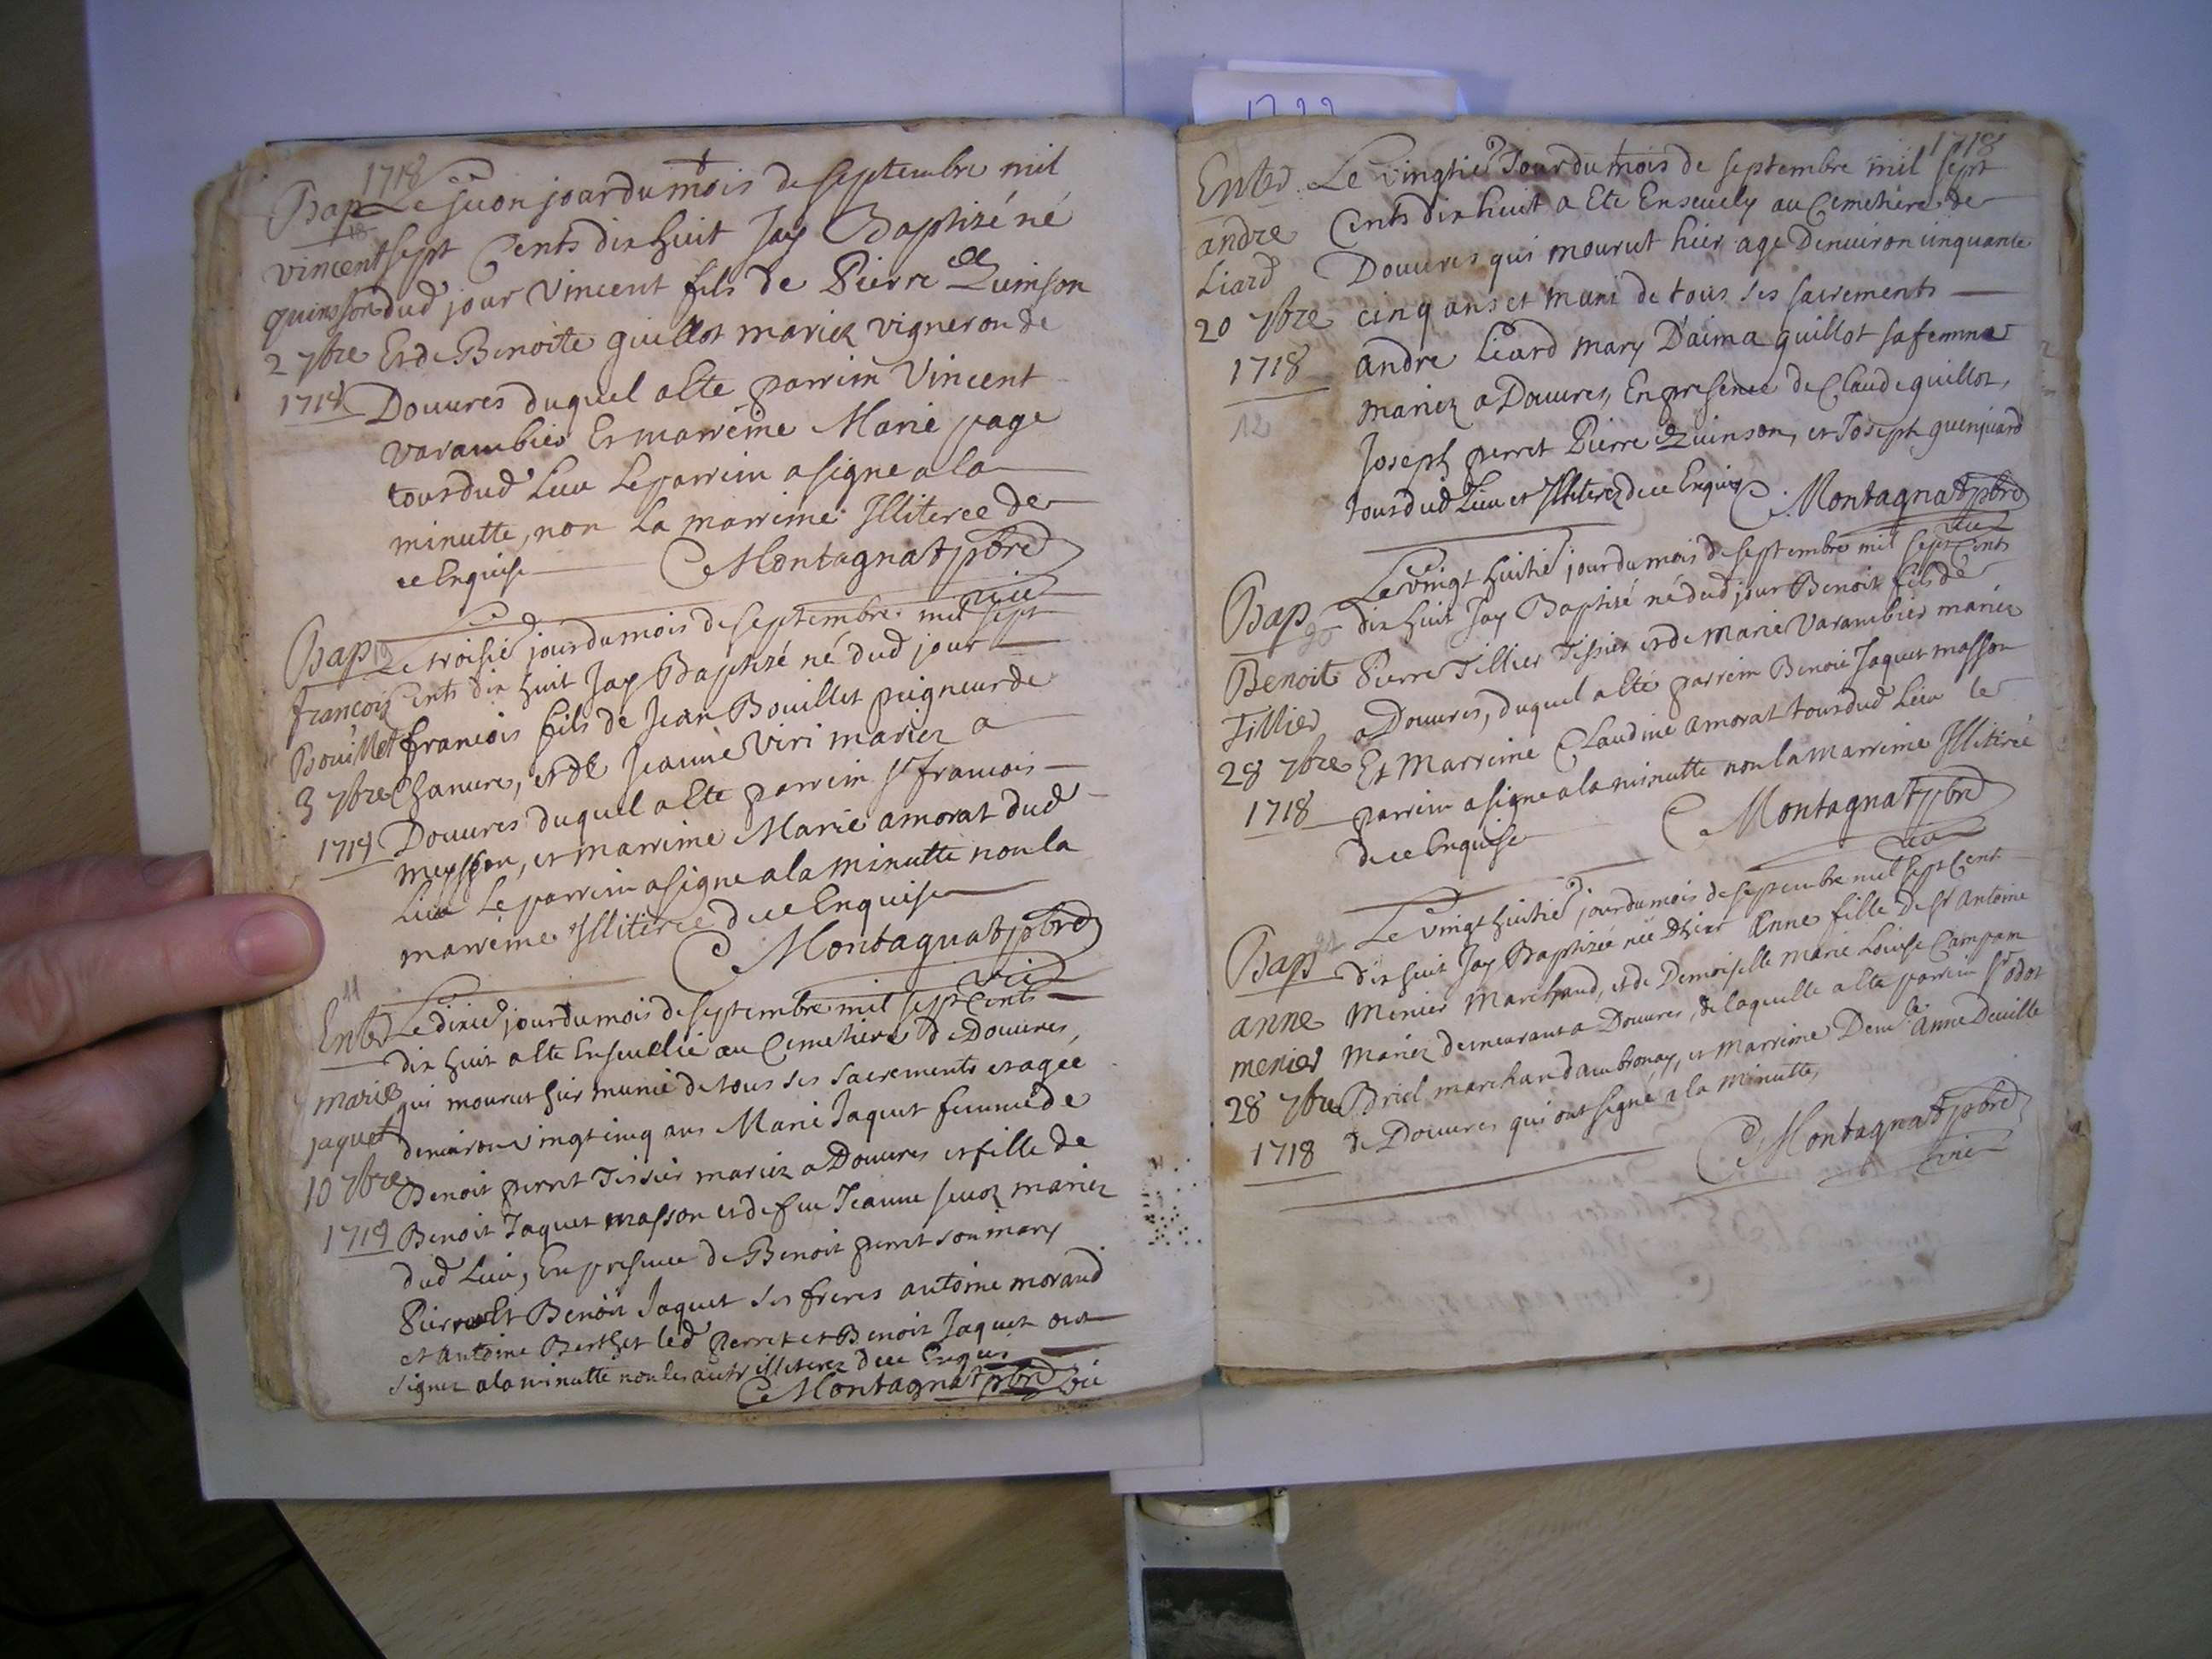 1718
Bap Le secon jour du mois de septembre mil
18
vincent sept Cents dix huit Jay Baptizé né
quinson dud jour Vincent fils de Pierre Quinson
2 7bre Et de Benoite guillot mariez vigneron de
1718 Douures duquel a Ete parrein Vincent
varambier Et marreine Marie page
tous dud Lieu Le parrein a signe a la
minutte, non La marreine Illiteree de
ce Enquise C Montagnat pbre
vic
Bap 19 Le troisie jour du mois de septembre mil sept
francois Cents dix huit Jay Baptizé né dud jour
Bouillet francois fils de Jean Bouillet peigneur de
3 7bre Chanure, et de Jeanne Viri mariez a
1718 Douures duquel a Ete parrein sr francois
meysson, et marreine Marie amorat dud
Lieu Le parrein a signe a la minutte non la
marreine Illiteree de ce Enquise
C Montagnat pbre
vic
11
Enter Le dixie jour du mois de septembre mil sept Cents
dix huit a Ete Enseuelie au Cemetiere de Douures,
marie qui mourut hier munie de tous ses sacrements et agée
jaquet denuiron vingt cinq ans Marie Jaquet femme de
10 7bre Benoit perret Tissier mariez a Douures et fille de
1718 Benoit Jaquet masson et de feu Jeanne mariez
dud Lieu, En presence de Benoit perret son mary
Pierre Et Benoit Jaquet ses freres antoine morand
et antoine Berthet led Perret et Benoit Jaquet ont
signez a la minutte non les autr illiterez de ce Enquis
C Montagnat pbre vic
1722
1718
Enter Le vingtie Jour du mois de septembre mil sept
andre Cents dix huit a Ete Enseuely au Cemetiere de
Liard Douures qui mourut hier age Denuiron cinquante
20 7bre cinq ans et muni de tous ses sacrements
1718 andre Liard mary D'aima guillot sa femme
12 mariez a Douures, En presence de Claude guillot,
Joseph perret Pierre Quinson, et Joseph
tous dud Lieu et Illiterez de ce Enquis C Montagnat pbre
vic
Le vingt huitie jour du mois de septembre mil sept Cents
Bap 20 dix huit Jay Baptizé né dud jour Benoit fils de
Benoit Pierre Tillier Tissier et de Marie Varambier mariez
Tillier a Douures, duquel a Ete parrein Benoit Jaquet masson
28 7bre Et Marreine Claudine amorat tous dud Lieu le
1718 parrein a signe a la minutte non la marreine Illiterée
de ce Enquise C Montagnat pbre
vic
Le vingt huitie jour du mois de septembre mil sept Cent
Bap 21 dix huit Jay Baptizée née Dhier Anne fille De sr Antoine
anne Menier Marchand, et de Demoiselle Marie Louise Campam
menier Mariez demeurant a Douures, de laquelle a Ete parrein sr odot
28 7bre Briel marchand ambronay, et Marreine Demlle Anne Deuille
1718 de Douures qui ont signé a la Minutte,
C Montagnat pbre
vic